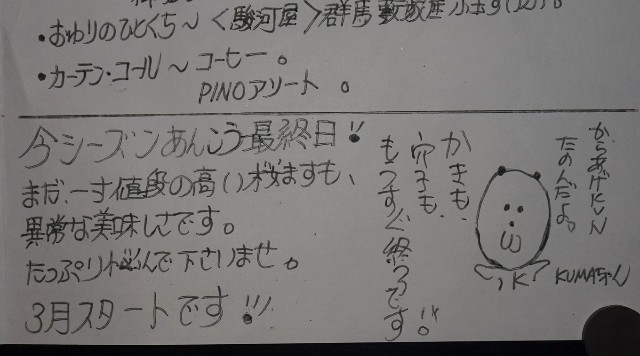 •おかわりのひとくち～〈駿河屋〉群馬
•カーテン・コール～コーヒー。
PINOアソート。
今シーズンあんこう最終日!!
まだ、一寸値段の高い桜ますも、
異常な美味しさです。
たっぷり楽しんで下さいませ。
3月スタートです!!!
かきも、
穴子も、
もうすぐ終るです!!
からあげKUN
たのんだよ。
KUMAちゃん